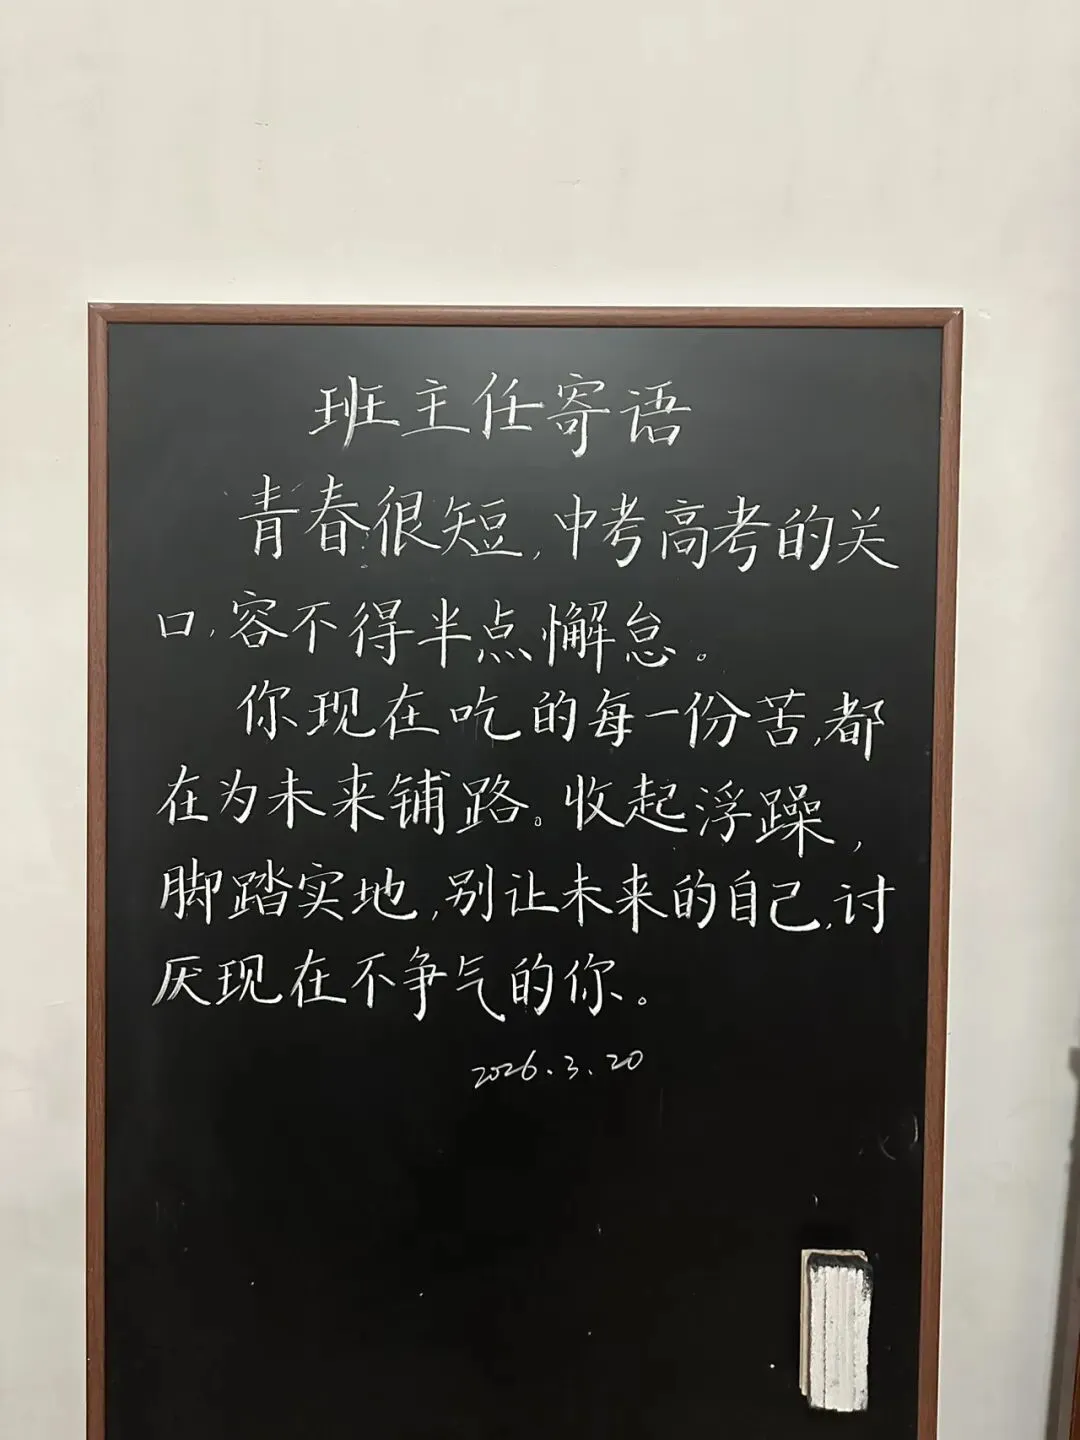 班主任寄语
青春很短,中考高考的关
口,容不得半点懈怠。
你现在吃的每一份苦,都
在为未来铺路。收起浮躁,
脚踏实地,别让未来的自己,讨
厌现在不争气的你。
2026.3.20